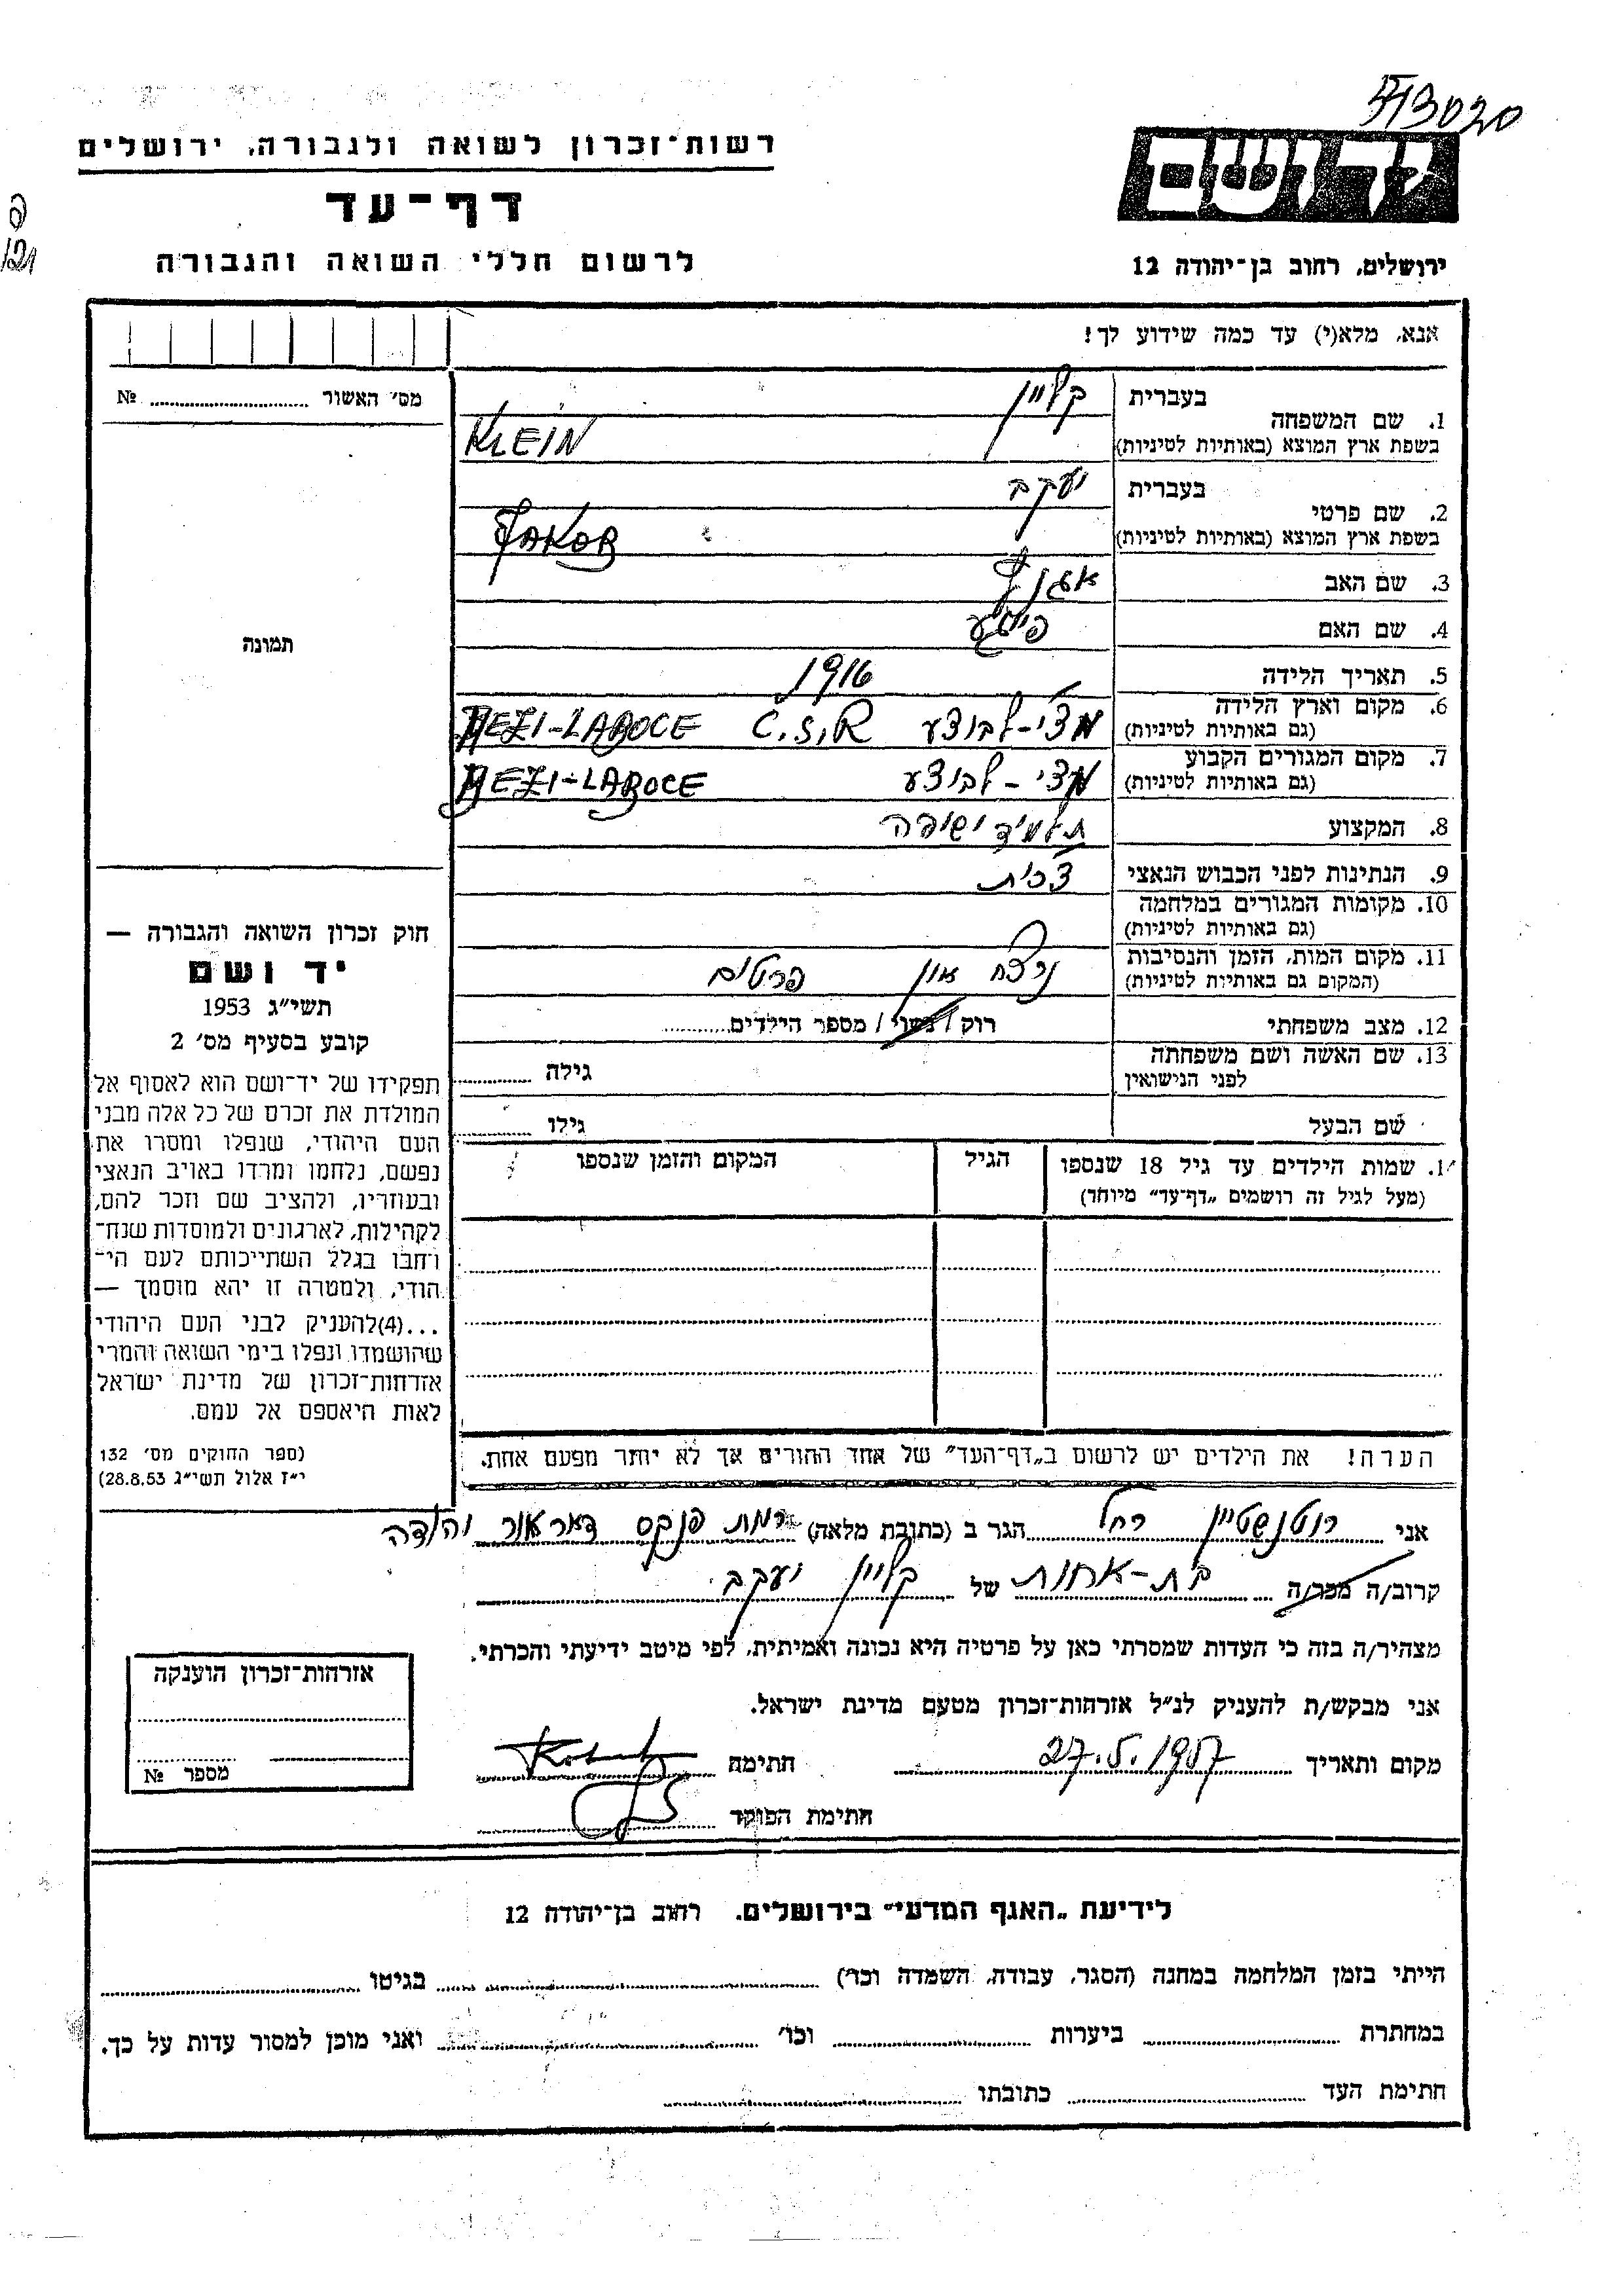 רשות־זכרון לשואה ולגבורה, ירושלים
דף־עד
לרשום חללי השואה והגבורה
ידושם
ירושלים, רחוב בן־יהודה 12
אנא, מלא(י) עד כמה שידוע לך!
מס׳ האשור № 
תמונה
חוק זכרון השואה והגבורה —
יד ושם
תשי״ג 1953
קובע בסעיף מס׳ 2
תפקידו של יד־ושם הוא לאסוף אל
המולדת את זכרם של כל אלה מבני
העם היהודי, שנפלו ומסרו את
נפשם, נלחמו ומרדו באויב הנאצי
ובעוזריו, ולהציב שם וזכר להם,
לקהילות, לארגונים ולמוסדות שנח־
רחבו בגלל השתייכותם לעם הי־
הודי, ולמטרה זו יהא מוסמך —
...(4)להעניק לבני העם היהודי
שהושמדו ונפלו בימי השואה והמרי
אזרחות־זכרון של מדינת ישראל
לאות היאספם אל עמם.
(ספר החוקים מס׳ 132
י״ז אלול תשי״ג 28.8.53)
בעברית קליין
1. שם המשפחה
בשפת ארץ המוצא (באותיות לטיניות) KLEIN
בעברית יעקב
2. שם פרטי
בשפת ארץ המוצא (באותיות לטיניות) JAKOB
3. שם האב
4. שם האם
5. תאריך הלידה 1916
6. מקום וארץ הלידה מצי-לבוצע C.S.R MEZI-LABOCE
(גם באותיות לטיניות)
7. מקום המגורים הקבוע מצי-לבוצע MEZI-LABOCE
(גם באותיות לטיניות)
8. המקצוע תלמיד ישיבה
9. הנתינות לפני הכבוש הנאצי צכית
10. מקומות המגורים במלחמה
(גם באותיות לטיניות)
11. מקום המות, הזמן והנסיבות נרצח אין פרטים
(המקום גם באותיות לטיניות)
12. מצב משפחתי רוק / נשוי / מספר הילדים
13. שם האשה ושם משפחתה גילה
לפני הנישואין
שם הבעל גילו
1. שמות הילדים עד גיל 18 שנספו הגיל המקום והזמן שנספו
(מעל לגיל זה רושמים „דף־עד״ מיוחד)
הערה! את הילדים יש לרשום ב„דף־העד״ של אחד ההורים אך לא יותר מפעם אחת.
אני רוטנשטיין רחל הגר ב (כתובת מלאה) רמת פנקס דאר אור יהודה
קרוב/ה מכר/ה בת-אחות של קליין יעקב.
מצהיר/ה בזה כי העדות שמסרתי כאן על פרטיה היא נכונה ואמיתית, לפי מיטב ידיעתי והכרתי.
אני מבקש/ת להעניק לנ״ל אזרחות־זכרון מטעם מדינת ישראל.
מקום ותאריך 27.5.1957 חתימה
חתימת הפוקד
אזרחות־זכרון הוענקה
מספר №
לידיעת „האגף המדעי״ בירושלים, רחוב בן־יהודה 12
הייתי בזמן המלחמה במחנה (הסגר, עבודה, השמדה וכו׳) בגיטו
במחתרת ביערות וכו׳ ואני מוכן למסור עדות על כך.
חתימת העד כתובתו